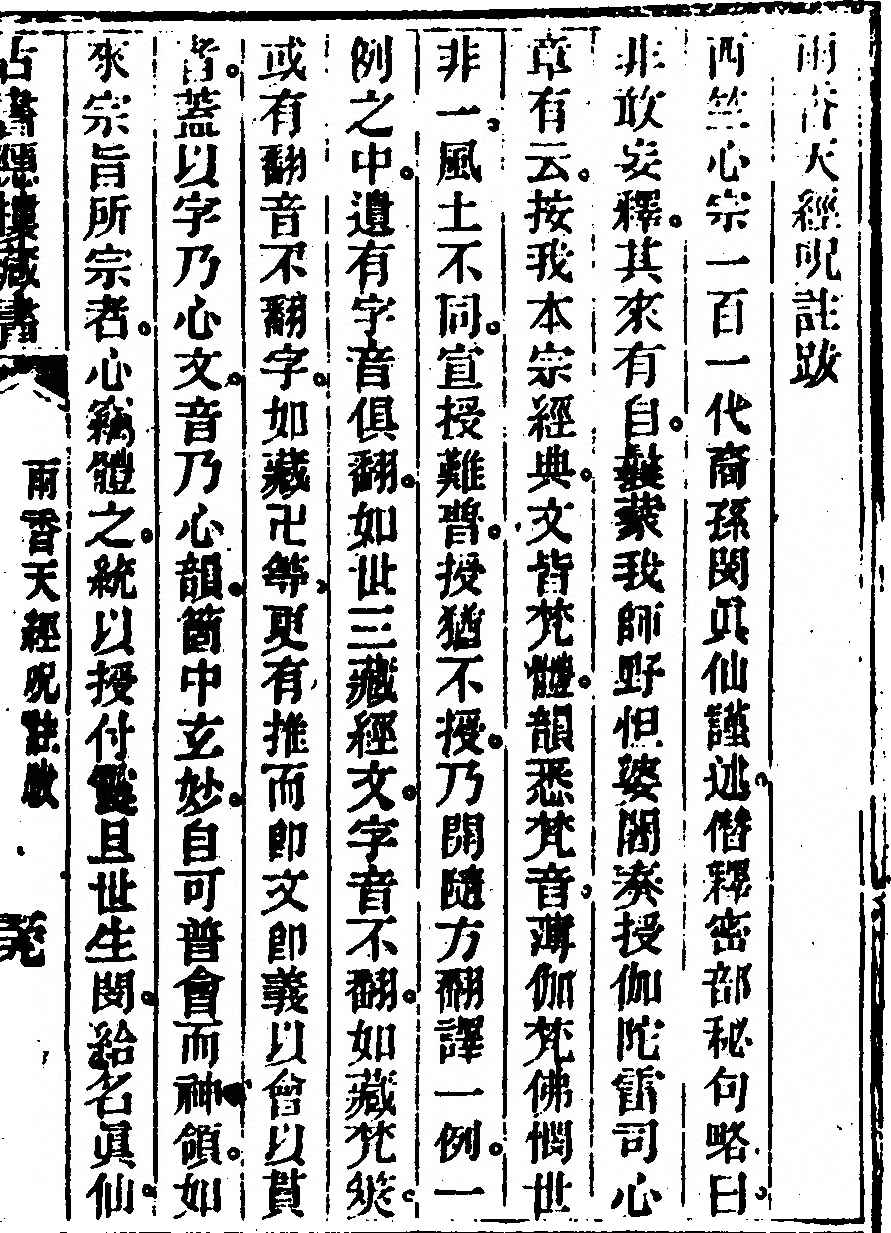 雨香天經呪註跋
西竺心宗一百一代裔孫閔眞仙謹述僭釋密部秘句略曰
非敢妄釋其來有自爰蒙我師野怛婆闍奏授伽陀雷司心
章有云按我本宗經典文皆梵體韻悉梵音薄伽梵佛憫世
非一風土不同宣授難普授猶不授乃開隨方翻譯一例一
例之中遺有字音俱翻如世三藏經文字音不翻如藏梵筴
或有翻音不翻字如藏卍等更有推而卽文卽義以會以貫
者蓋以字乃心文音乃心韻箇中玄妙自可普會而神領如
來宗旨所宗者心竊體之統以授付震旦世生閔給名眞仙
古書隱樓藏書
雨香天經呪註跋